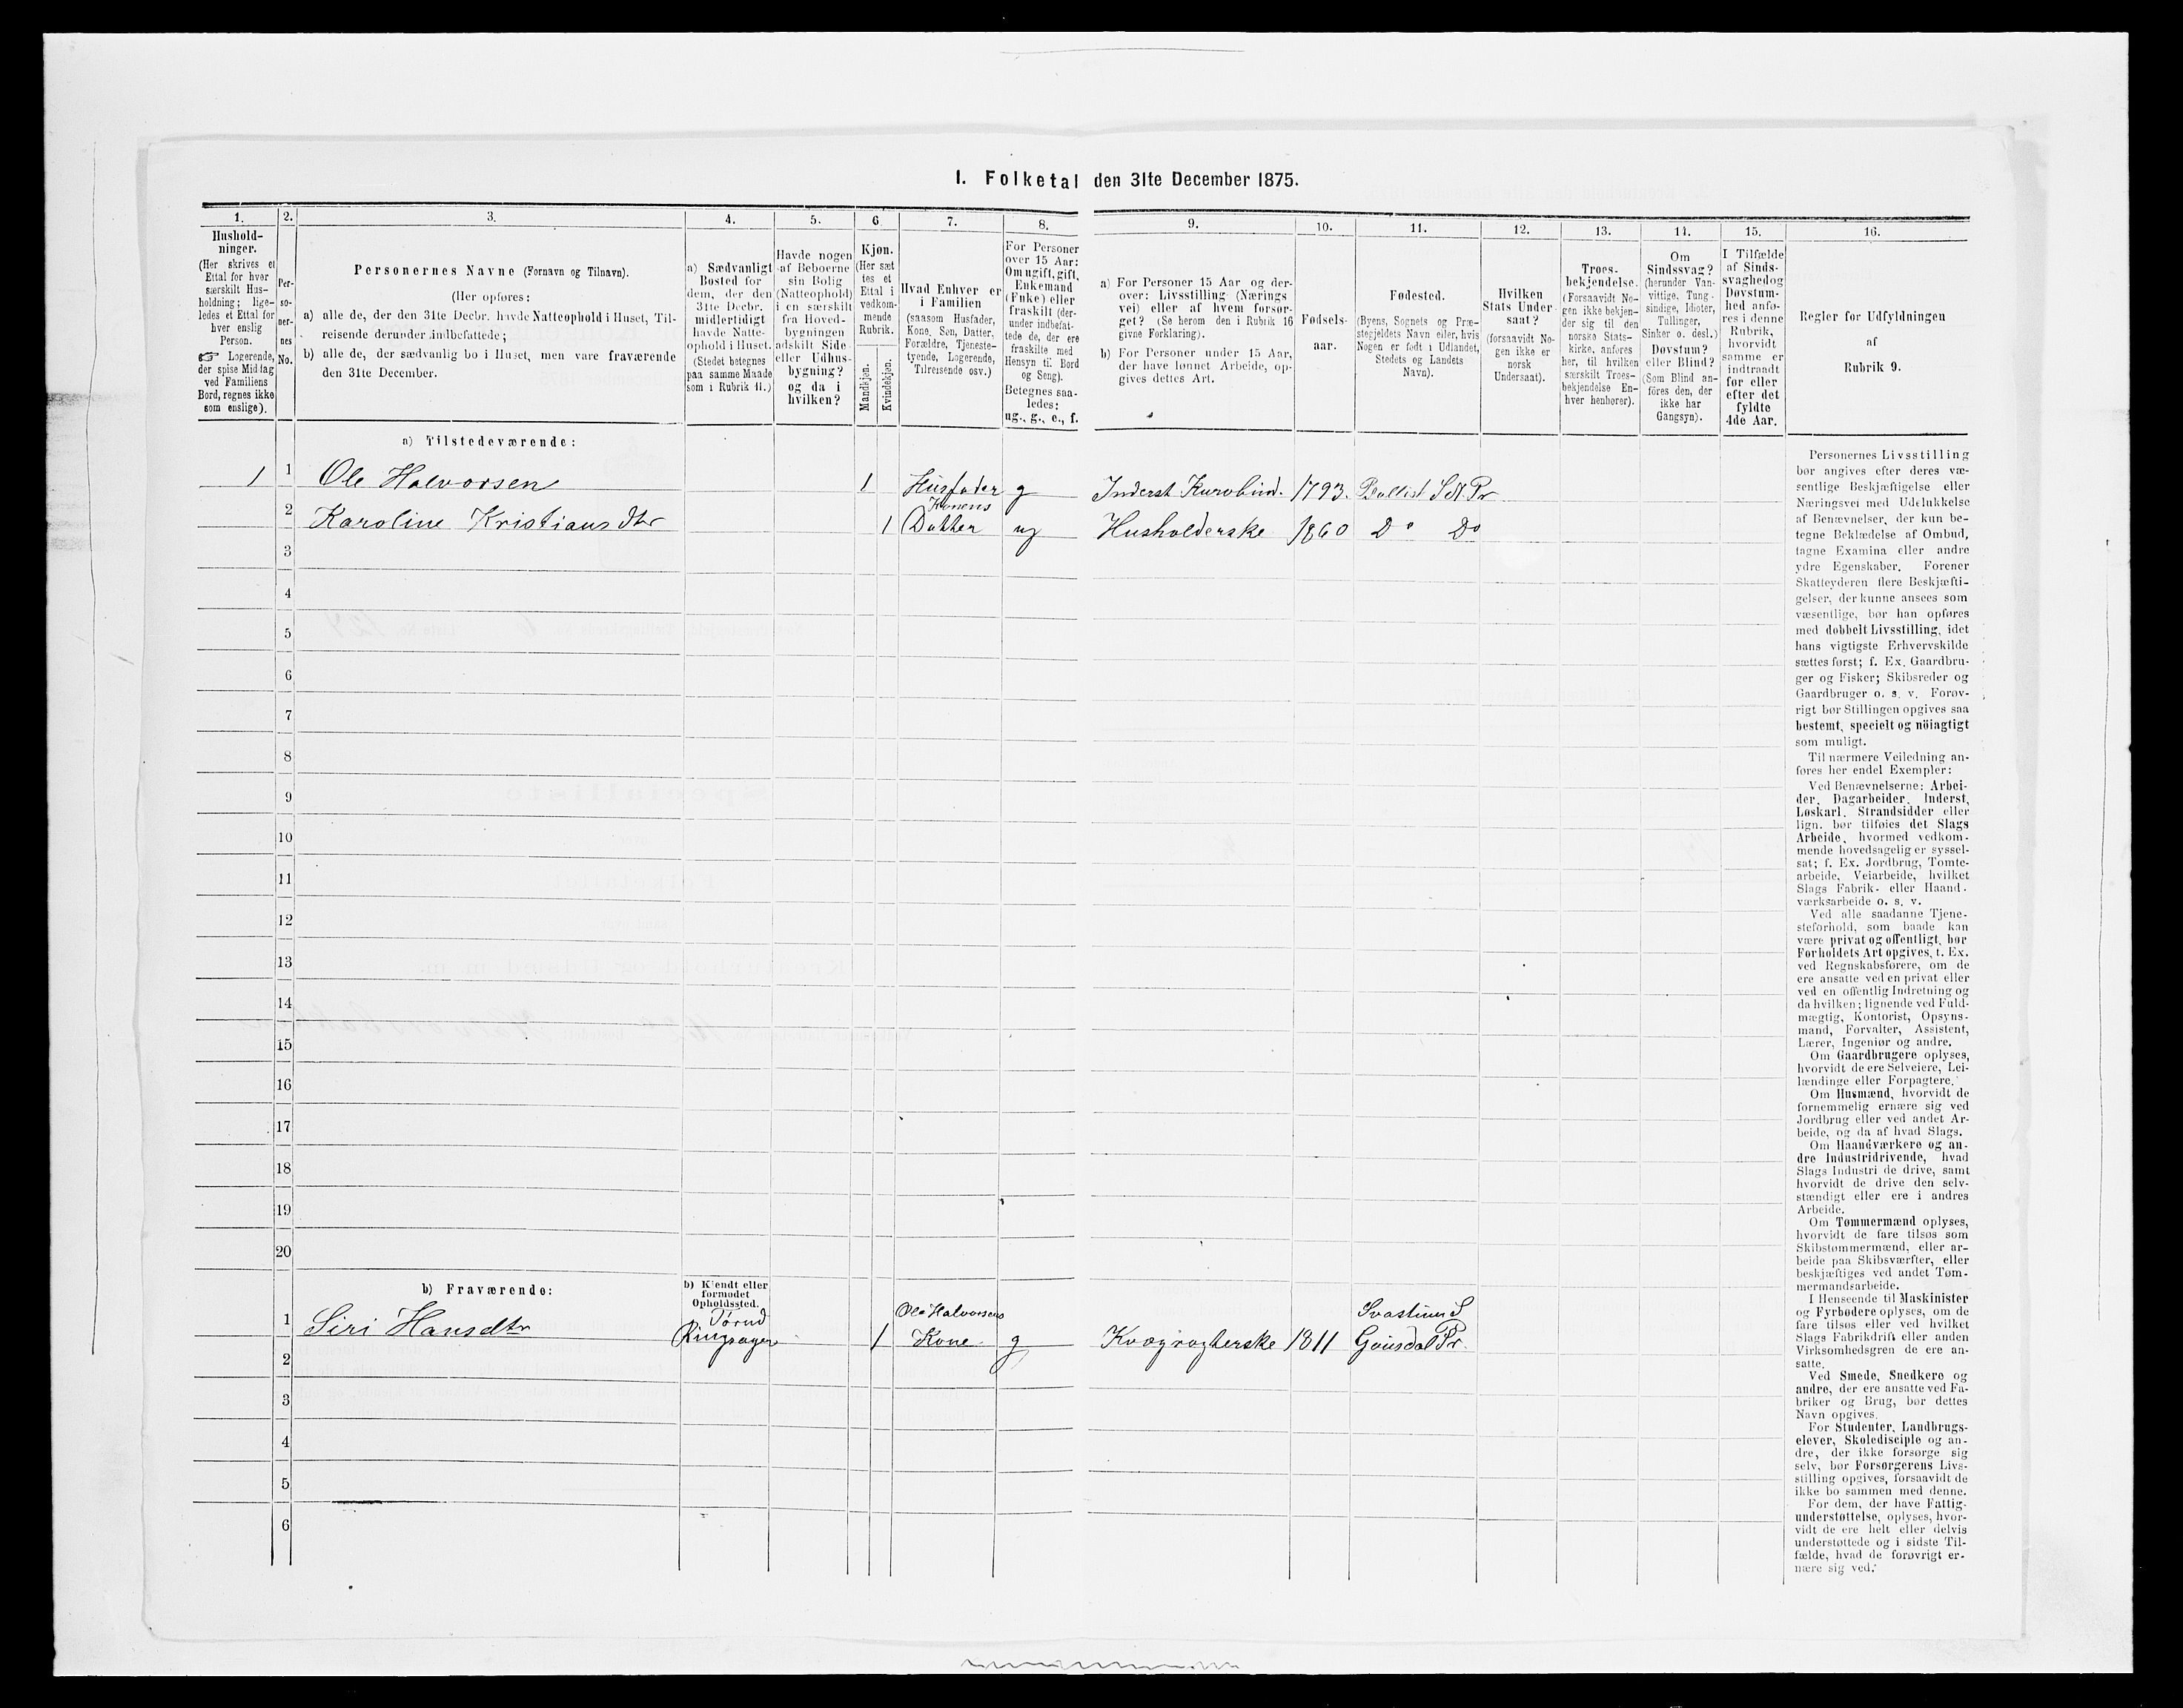 I. Folketal den 31te December 1875.
1.
Hushold-
ninger.
(Her skrives et
Ettal for hver
særskilt Hus-
holdning; lige-
ledes et Ettal for
hver enslig
Person.
☞ Logerende,
der spise Middag
ved Familiens
Bord, regnes ikke
som enslige).
2.
Per-
so-
ner-
nes
No.
3.
Personernes Navne (Fornavn og Tilnavn).
(Her opføres:
a) alle de, der den 31te Decbr. havde Natteophold i Huset, Til-
reisende derunder indbefattede;
b) alle de, der sædvanlig bo i Huset, men vare fraværende
den 31te December.
4.
a) Sædvanligt
Bosted for
dem, der den
31te Decbr.
midlertidigt
havde Natte-
ophold i Huset.
(Stedet betegnes
paa samme Maade
som i Rubrik 11.)
5.
Havde nogen
af Beboerne
sin Bolig
(Natteophold)
i en særskilt
fra Hoved-
bygningen
adskilt Side-
eller Udhus-
bygning?
og da i
hvilken?
6
Kjøn.
(Her sæt
tes et
Ettal i
vedkom-
mende
Rubrik.
Mandkjøn.
Kvindekjøn.
7.
Hvad Enhver er
i Familien
(saasom Husfader,
Kone, Søn, Datter,
Forældre, Tjeneste-
tyende, Logerende,
Tilreisende osv.)
8.
For Personer
over 15 Aar:
Om ugift, gift,
Enkemand
(Enke) eller
fraskilt (der-
under indbefat-
tede de, der ere
fraskilte med
Hensyn til Bord
og Seng).
Betegnes saa-
ledes:
ug., g., e., f.
9.
a) For Personer 15 Aar og der-
over: Livsstilling (Nærings
vei) eller af hvem forsør-
get? (Se herom den i Rubrik 16
givne Forklaring).
b) For Personer under 15 Aar,
der have lønnet Arbeide, op-
gives dettes Art.
10.
Fødsels-
aar.
11.
Fødested.
(Byens, Sognets og Præ-
stegjeldets Navn eller, hvis
Nogen er født i Udlandet,
Stedets og Landets
Navn).
12.
Hvilken
Stats Under
saat?
(forsaavidt No-
gen ikke er
norsk
Undersaat).
13.
Troes-
bekjendelse.
(Forsaavidt No-
gen ikke bekjen-
der sig til den
norske Stats-
kirke, anføres
her, til hvilken
særskilt Troes-
bekjendelse En-
hver henhører).
14.
Om
Sindssvag?
(herunder Van-
vittige, Tung-
sindige, Idioter,
Tullinger,
Sinker o. desl.)
Døvstum?
eller Blind?
(Som Blind an-
føres den, der
ikke har
Gangsyn).
15.
I Tilfælde
af Sinds-
svaghed og
Døvstum-
hed anfø-
res i denne
Rubrik,
hvorvidt
samme er
indtraadt
før eller
efter det
fyldte
4de Aar.
16.
Regler for Udfyldningen
af
Rubrik 9.
a) Tilstedeværende:
1 1 Ole Halvorsen 1 Husfader g Inderst Kurvbind. 1793. S A Pr
2 Karoline Kristiansdtr 1 Konens Datter ug Husholderske 1860 Do Do
3
4
5
6
7
8
9
10
11
12
13
14
15
16
17
18
19
20
b) Fraværende:
b) Kjendt eller
formodet
Opholdssted.
1 Siri Hansdtr Ringsager 1 Ole Halvorsens Kone g Kvægrøgterske 1811 Gausdal Pr.
2
3
4
5
6
Personernes Livsstilling
bør angives efter deres væ-
sentlige Beskjæftigelse eller
Næringsvei med Udelukkelse
af Benævnelser, der kun be-
tegne Beklædelse af Ombud,
tagne Examina eller andre
ydre Egenskaber. Forener
Skatteyderen flere Beskjæfti-
gelser, der kunne ansees som
væsentlige, bør han opføres
med dobbelt Livsstilling, idet
hans vigtigste Erhvervskilde
sættes først; f. Ex. Gaardbru-
ger og Fisker; Skibsreder og
Gaardbruger o. s. v. Forøv-
rigt bør Stillingen opgives saa
bestemt, specielt og nöiagtigt
som muligt.
Til nærmere Veiledning an-
føres her endel Exempler:
Ved Benævnelserne: Arbei-
der, Dagarbeider, Inderst,
Løskarl, Strandsidder eller
lign. bør tilføies det Slags
Arbeide, hvormed vedkom-
mende hovedsagelig er syssel-
sat; f. Ex. Jordbrug, Tomte-
arbeide, Veiarbeide, hvilket
Slags Fabrik- eller Haand-
værksarbeide o. s. v.
Ved alle saadanne Tjene-
steforhold, som baade kan
være privat og offentligt, bør
Forholdets Art opgives, t. Ex.
ved Regnskabsførere, om de
ere ansatte ved en privat eller
ved en offentlig Indretning og
da hvilken; lignende ved Fuld-
mægtig, Kontorist, Opsyns-
mand, Forvalter, Assistent,
Lærer, Ingeniør og andre.
Om Gaardbrugere oplyses,
hvorvidt de ere Selveiere, Lei-
lændinge eller Forpagtere.
Om Husmænd, hvorvidt de
fornemmelig ernære sig ved
Jordbrug eller ved andet Ar-
beide, og da af hvad Slags.
Om Haandværkere og an-
dre Industridrivende, hvad
Slags Industri de drive, samt
hvorvidt de drive den selv-
stændigt eller ere i andres
Arbeide.
Om Tømmermænd oplyses,
hvorvidt de fare tilsøs som
Skibstømmermænd, eller ar-
beide paa Skibsværfter, eller
beskjæftiges ved andet Tøm-
mermandsarbeide.
I Henseende til Maskinister
og Fyrbødere oplyses, om de
fare tilsøs eller ved hvilket
Slags Fabrikdrift eller anden
Virksomhedsgren de ere an-
satte.
Ved Smede, Snedkere og
andre, der ere ansatte ved Fa-
briker og Brug, bør dettes
Navn opgives.
For Studenter, Landbrugs-
elever, Skoledisciple og an-
dre, der ikke forsørge sig
selv, bør Forsørgerens Livs-
stilling opgives, forsaavidt de
ikke bo sammen med denne.
For dem, der have Fattig-
understøttelse, oplyses, hvor-
vidt de ere helt eller delvis
understøttede og i sidste Til-
fælde, hvad de forøvrigt er-
nære sig ved.